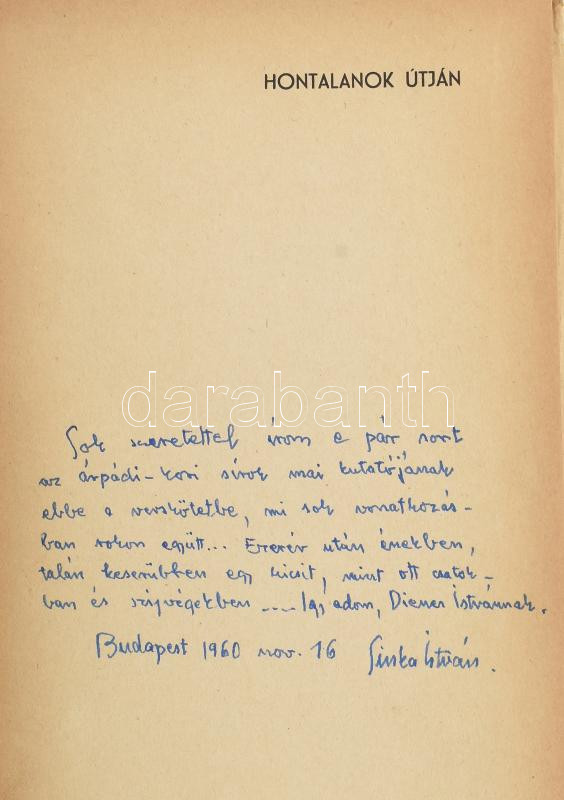 HONTALANOK ÚTJÁN
darabanth
Sok szeretettel írom e pár sort
az árpádi-kori sírok mai kutatójának
ebbe a verskötetbe, mi sok vonatkozás-
ban rokon együtt... Ezerév után énekben,
talán keserűbben egy kicsit, mint ott csatok-
ban és szíjvégekben .... Így adom, Diener Istvánnak.
Budapest 1960 nov. 16 Sinka István.